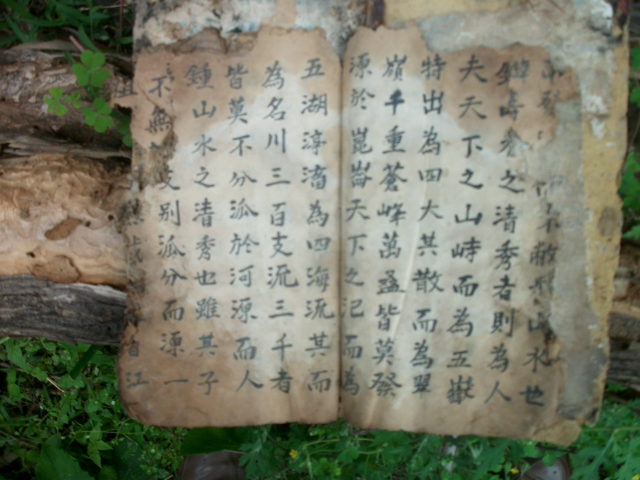 山水也
之清秀者則為人
夫天下之山峙而為五嶽
特出為四大其散而為翠
嶺千重蒼峰萬疊皆莫發
源於崑崙天下之氾而為
五湖渟潴為四海流其而
為名川三百支流三千者
皆莫不分泒於河源而人
鍾山水之清秀也雖其子
不無支別泒分而源一
自江